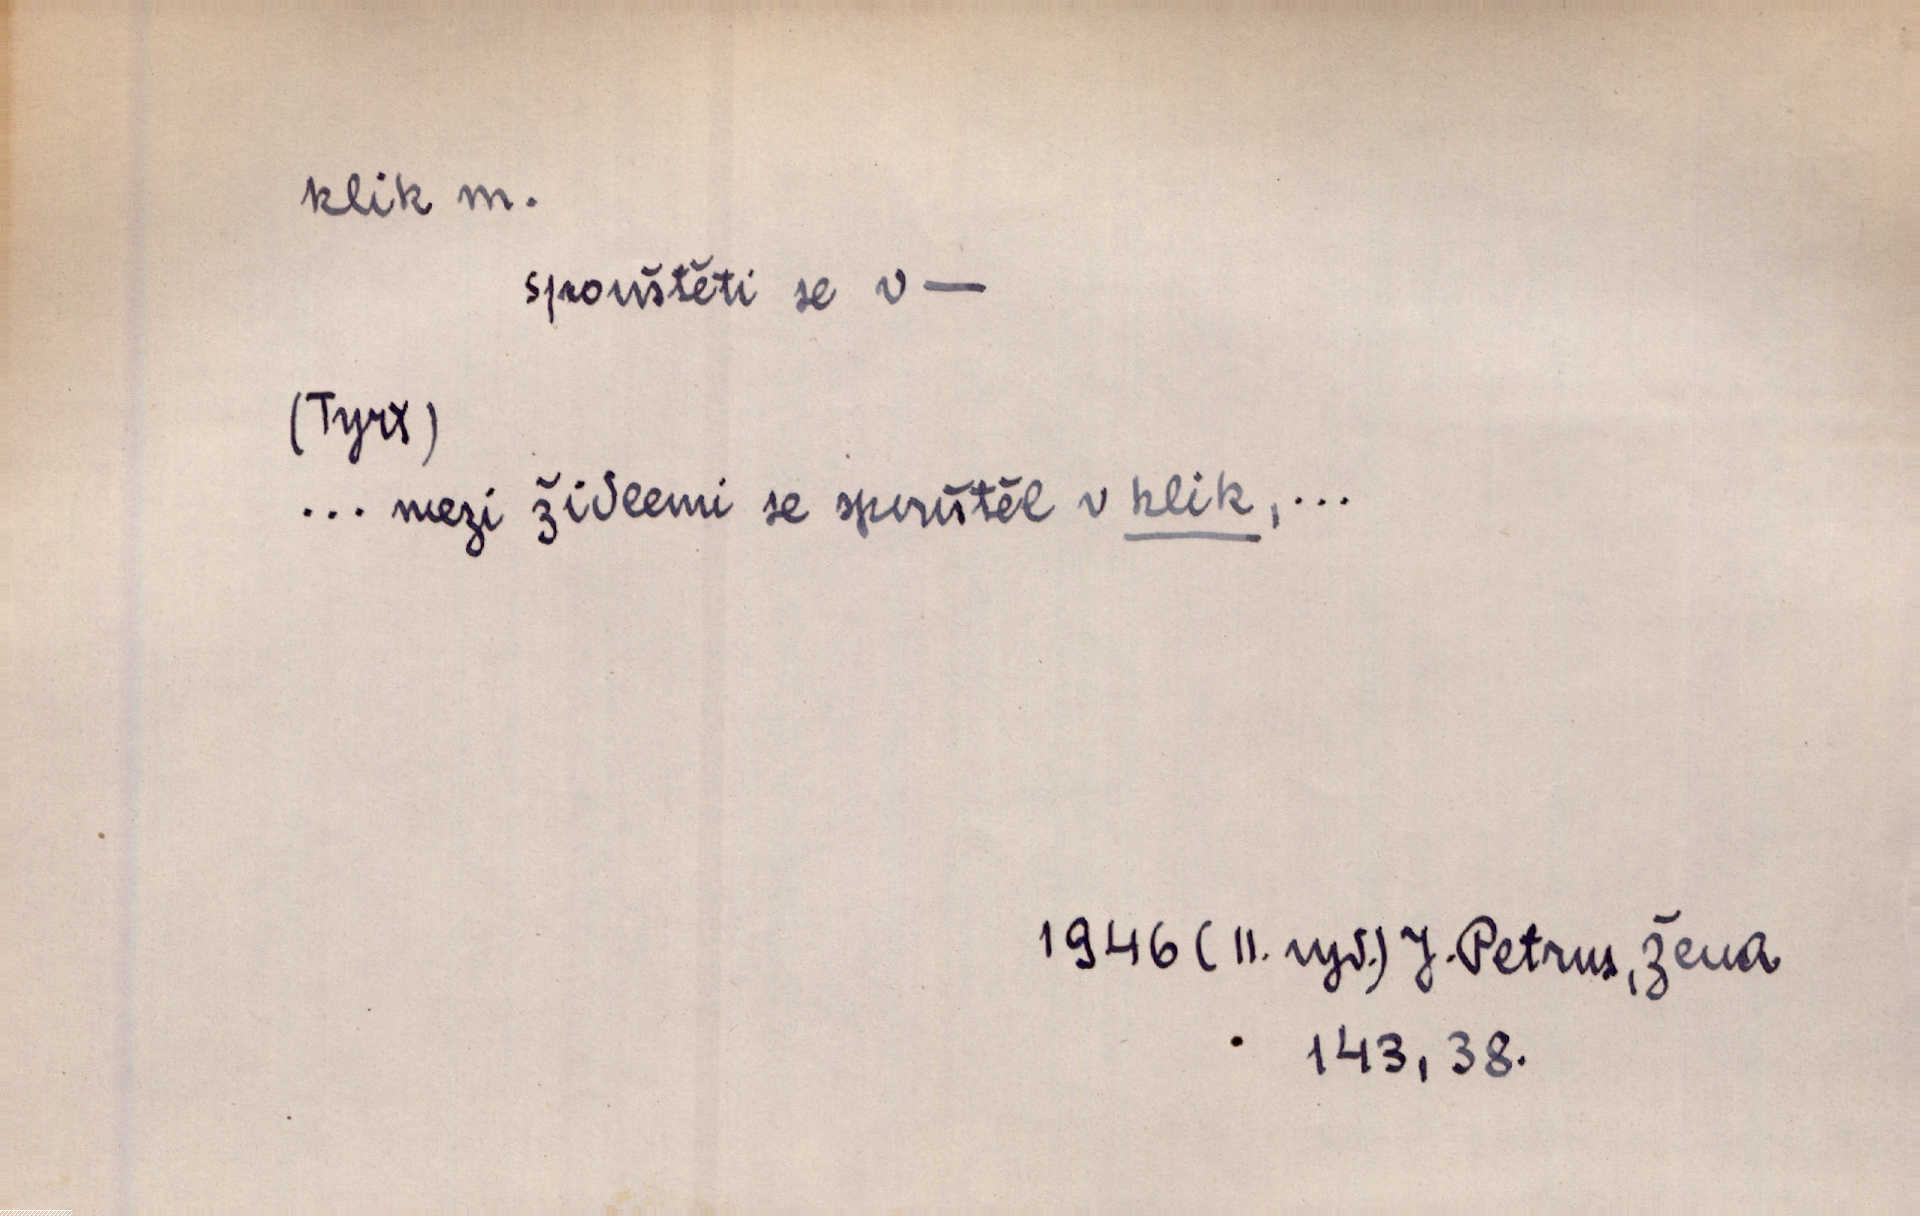 klik m.
spouštěti se v —
(Tyrš)
... mezi židlemi se spouštěl v klik, ...
1946 (II. vyd.) J. Petrus, Žena
143, 38.